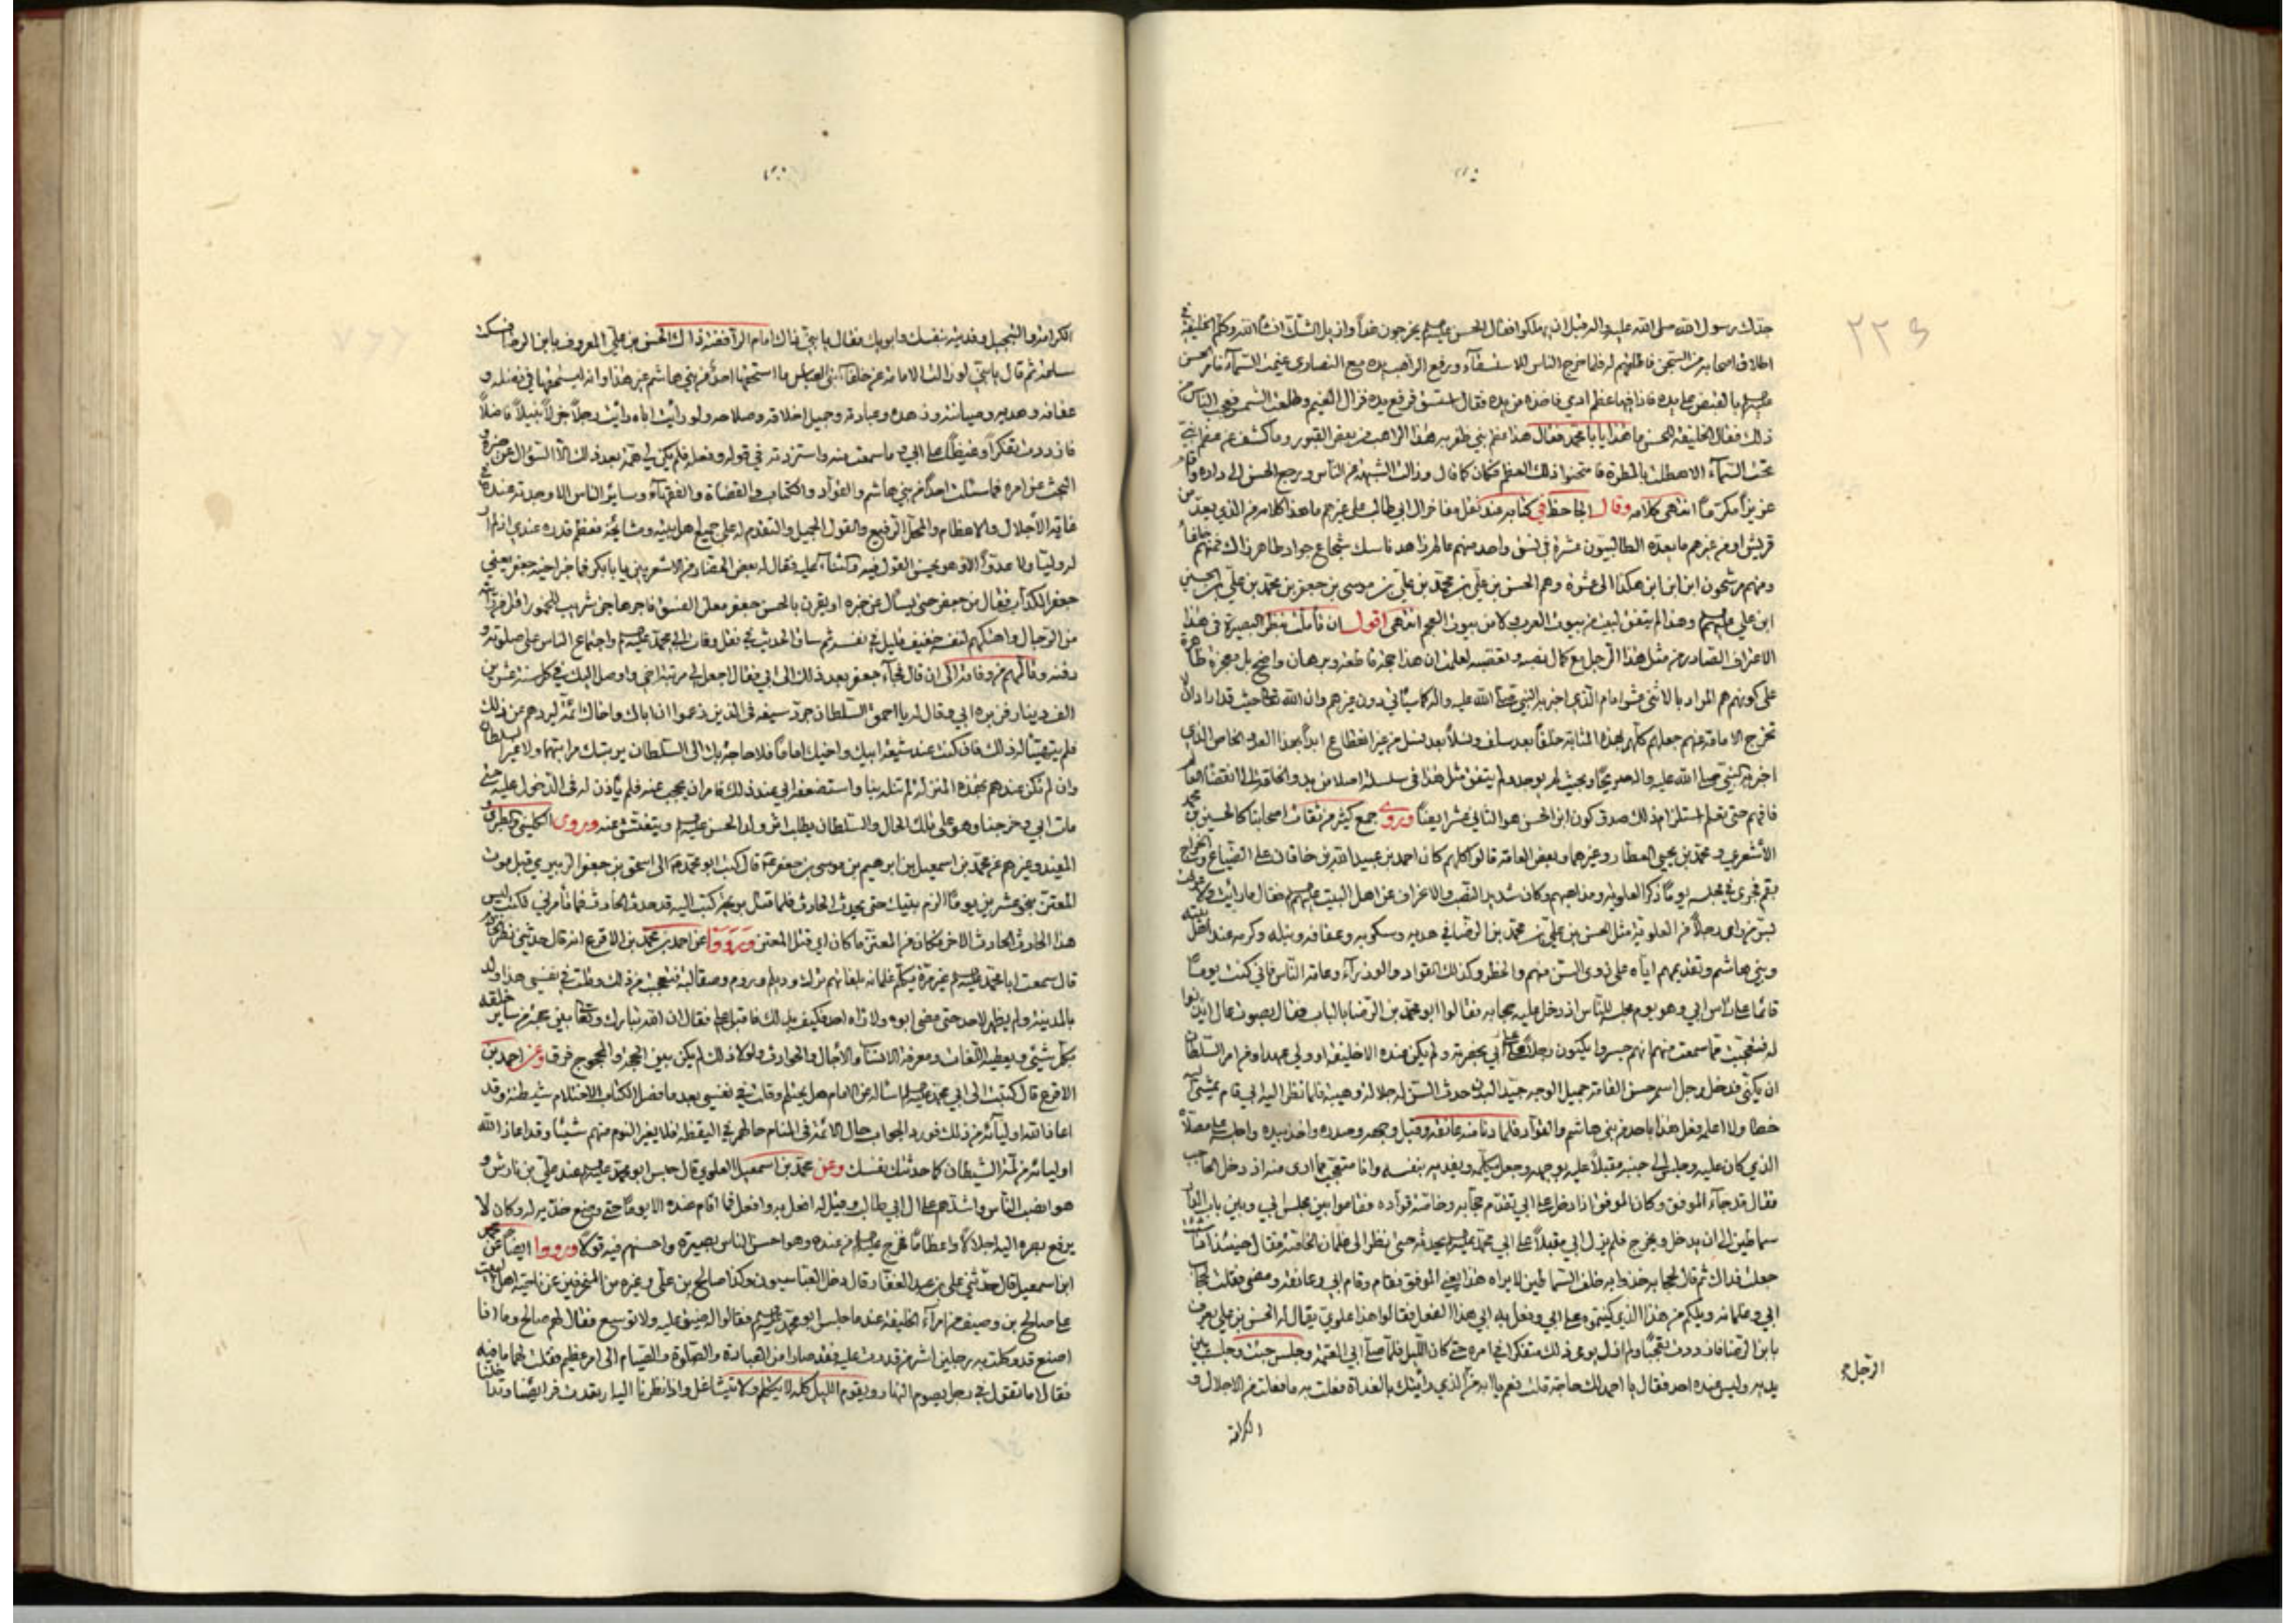 جدك رسول الله صلى الله عليه واله قبل ان يهلكوا فقال الحسن عليه السلم يخرجون غداً وانا ازيل الشك انشاء الله وكلم الخليفة في
اطلاق اصحابه من السجن فاطلقهم له فلما خرج الناس للاستسقاء ورفع الراهب يده مع النصارى غيمت السماء فامر الحسن
عليه السلم بالقبض على يده فاذا فيها عظم ادمي فاخذه من يده فقال استسق فرفع يده فزال الغيم وطلعت الشمس فعجب الناس من
ذلك فقال الخليفة للحسن ما هذا يا با محمد فقال هذا عظم نبي ظفر به هذا الراهب من بعض القبور وما كشف عن عظم نبي
تحت السماء الا هطلت بالمطر فامتحنوا ذلك العظم فكان كما قال وزالت الشبهة عن الناس ورجع الحسن الى داره واقام
عزيزاً مكرّماً انتهى كلامه وقال الجاحظ في كتابه عند نقل مفاخر ال ابي طالب على غيرهم ما هذا كلامه من الذي يعدّ من
قريش او من غيرهم ما يعده الطالبيون عشرة في نسق واحد منهم عالم زاهد ناسك شجاع جواد طاهر زاك فمنهم خلفاً
ومنهم مرشحون ابن ابن ابن هكذا الى عشرة وهم الحسن بن علي بن محمد بن علي بن موسى بن جعفر بن محمد بن علي بن الحسين
ابن علي عليهم السلم وهذا لم يتفق لبيت من بيوت العرب ولا من بيوت العجم انتهى اقول ان تأملت بنظر البصيرة في هذا
الاعتراف الصادر من مثل هذا الرجل مع كمال نصبه وتعصبه لعلمت ان هذا حجة قاطعة وبرهان واضح بل معجزة ظاهرة
على كونهم هم المراد بالاثنى عشر امام الذي اخبر به النبي صلى الله عليه واله كما سيأتي دون غيرهم وان الله تعالى حيث قد اراد ان لا
تخرج الامامة عنهم جعلهم كلهم بهذه المثابة خلفاً بعد سلف ونسلاً بعد نسل من غير انقطاع ابداً بهذا العدد الخاص الذي
اخبر به النبي صلى الله عليه واله صريحاً وبحيث لم يوجد ولم يتفق مثل هذا في سلسلة اصلا من بدو الخلقة الى انقضاء العالم
فافهم حتى تعلم استلزام ذلك صدق كون ابن الحسن هو الثاني عشر ايضاً وروى جمع كثير من ثقات اصحابنا كالحسين بن محمد
الأشعري ومحمد بن يحيى العطار وغيرهما وبعض العامة قالوا كلهم كان احمد بن عبيد الله بن خاقان على الضياع والخراج
بقم فجرى في مجلسه يوماً ذكر العلوية ومذاهبهم وكان شديد النصب والانحراف عن اهل البيت عليهم السلم فقال ما رأيت ولا عرفت
بسر من راى رجلاً من العلوية مثل الحسن بن علي بن محمد بن الرضا في هديه وسكونه وعفافه ونبله وكرمه عند اهل بيته
وبني هاشم وتقديمهم اياه على ذوي السن منهم والخطر وكذلك القواد والوزراء وعامة الناس فاني كنت يوماً
قائماً على راس ابي وهو يوم مجلسه للناس اذ دخل عليه حجابه فقالوا ابو محمد بن الرضا بالباب فقال بصوت عال ائذنوا
له فتعجبت مما سمعت منهم انهم جسروا يكنون رجلاً على ابي بحضرته ولم يكن عنده الا خليفة او ولي عهد او من امر السلطان
ان يكنى فدخل رجل اسمر حسن القامة جميل الوجه جيد البدن حدث السن له جلالة وهيبة فلما نظر اليه ابي قام يمشي اليه
خطا ولا اعلمه فعل هذا باحد من بني هاشم والقوّاد فلما دنا منه عانقه وقبل وجهه وصدره واخذ بيده واجلسه على مصلاّه
الذي كان عليه وجلس الى جنبه مقبلاً عليه بوجهه وجعل يكلمه ويفديه بنفسه وانا متعجب مما ارى منه اذ دخل الحاجب
فقال قد جاء الموفق وكان الموفق اذا دخل على ابي تقدم حجابه وخاصة قواده فقاموا بين مجلس ابي وبين باب الدار
سماطين الى ان يدخل ويخرج فلم يزل ابي مقبلاً على ابي محمد عليه السلم يحدثه حتى نظر الى غلمان الخاصة فقال حينئذ اذا شئت
جعلت فداك ثم قال لحجابه خذوا به خلف السماطين لا يراه هذا يعني الموفق فقام وقام ابي وعانقه ومضى فقلت لحجاب
ابي وغلمانه ويلكم من هذا الذي كنيتموه على ابي وفعل به ابي هذا الفعل فقالوا هذا علوي يقال له الحسن بن علي يعرف
بابن الرضا فازددت تعجباً ولم ازل يومي ذلك متفكراً في امره حتى كان الليل فلما صلى ابي العتمة وجلس جئت وجلست بين
يديه وليس عنده احد فقال يا احمد لك حاجة قلت نعم يا ابه من الذي رأيتك بالغداة فعلت به ما فعلت من الاجلال و
الرجل
الكرامة
الكرامة والتبجيل وفديته بنفسك وابويك فقال يا بني ذاك امام الرافضة ذاك الحسن بن علي المعروف بابن الرضا فسكت
ساعة ثم قال يا بني لو زالت الامامة عن خلفاء بني العباس ما استحقها احد من بني هاشم غير هذا وانه ليستحقها في فضله و
عفافه وهديه وصيانته وزهده وعبادته وجميل اخلاقه وصلاحه ولو رأيت اباه رأيت رجلاً جزلاً نبيلاً فاضلاً
فازددت تفكراً وغيظاً على ابي مما سمعت منه واستزدته في قوله وفعله فلم يكن لي همة بعد ذلك الا السؤال عن خبره و
البحث عن امره فما سئلت احداً من بني هاشم والقواد والكتاب والقضاة والفقهاء وساير الناس الا وجدته عنده في
غاية الاجلال والاعظام والمحل الرفيع والقول الجميل والتقدم له على جميع اهل بيته ومشايخه فعظم قدره عندي اذ لم ار
له ولياً ولا عدواً الا وهو يحسن القول فيه والثناء عليه فقال له بعض الحضار من الاشعريين يا با بكر فما خبر اخيه جعفر يعني
جعفر الكذاب فقال من جعفر حتى يسأل عن خبره او يقرن بالحسن جعفر معلن الفسق فاجر ماجن شريب للخمور اقل من رأيته
من الرجال واهتكهم لنفسه خفيف قليل في نفسه ثم ساق الحديث في نقل وفات ابي محمد عليه السلم واجتماع الناس على صلوته و
دفنه وتألمهم من وفاته الى ان قال فجاء جعفر بعد ذلك الى ابي فقال اجعل لي مرتبة اخي واوصل اليك في كل سنة عشرين
الف دينار فزبره ابي وقال له يا احمق السلطان جرد سيفه في الذين زعموا ان اباك واخاك ائمة ليردهم عن ذلك
فلم يتهيأ له ذلك فان كنت عند شيعة ابيك واخيك اماماً فلا حاجة بك الى السلطان يرتبك مراتبهما ولا غير السلطان
وان لم تكن عندهم بهذه المنزلة لم تنلها بنا واستضعفه ابي عند ذلك فامر ان يحجب عنه فلم ياذن له في الدخول عليه حتى
مات ابي وخرجنا وهو على تلك الحال والسلطان يطلب اثر ولد الحسن عليه السلم ويتفتش عنه وروى الكليني والطبرسي و
المفيد وغيرهم عن محمد بن اسمعيل بن ابرهيم بن موسى بن جعفر قال كتب ابو محمد الى اسحق بن جعفر الزبيري قبل موت
المعتز بنحو عشرين يوماً الزم بيتك حتى يحدث الحادث فلما قتل بريحه كتب اليه قد حدث الحادث فما تأمرني فكتب ليس
هذا الحادث الحادث الاخر فكان من المعتز ما كان اي قتل المعتز ورووا عن احمد بن محمد بن الاقرع انه قال حدثني نصر الخادم
قال سمعت ابا محمد عليه السلم غير مرة يكلم غلمانه بلغاتهم ترك وديلم وروم وصقالبة فتعجبت من ذلك وقلت في نفسي هذا ولد
بالمدينة ولم يظهر لاحد حتى مضى ابوه ولا راه احد فكيف ذلك فاقبل علي فقال ان الله تبارك وتعالى بين حجته من ساير خلقه
بكل شيئ ويعطيه اللغات ومعرفة الانساب والآجال والحوادث ولولا ذلك لم يكن بين الحجة والمحجوج فرق وعن احمد بن
الاقرع قال كتبت الى ابي محمد عليه السلم اساله عن الامام هل يحتلم وقلت في نفسي بعد ما فصل الكتاب الاحتلام شيطنة وقد
اعاذ الله اوليآئه من ذلك فورد الجواب حال الائمة في المنام حالهم في اليقظة فلا يغير النوم منهم شيئا وقد اعاذ الله
اوليائه من لمة الشيطان كما حدثتك نفسك وعن محمد بن اسمعيل العلوي قال حبس ابو محمد عليه السلم عند علي بن نارش و
هو انصب الناس واشدهم على ال ابي طالب وقيل له افعل به وافعل فما اقام عنده الا يوماً حتى وضع خديه له وكان لا
يرفع بصره اليه اجلالاً واعظاماً فخرج عليه السلم من عنده وهو احسن الناس بصيرة واحسنهم فيه قولاً ورووا ايضاً عن محمد
ابن اسمعيل قال حدثني علي بن عبد الغفار قال دخل العباسيون وكذا صالح بن علي وغيره من المنحرفين عن ناحية اهل البيت
على صالح بن وصيف من امرآء الخليفة عندما حبس ابو محمد عليه السلم فقالوا له ضيق عليه ولا توسع فقال لهم صالح وما ذا
اصنع قد وكلت به رجلين اشر من قدرت عليه فقد صارا من العبادة والصلوة والصيام الى امر عظيم فقلت لهما ما فيه
فقالا ما تقول في رجل يصوم النهار ويقوم الليل كله لا يتكلم ولا يتشاغل واذا نظرنا اليه ارتعدت فرايصنا وتداخلنا